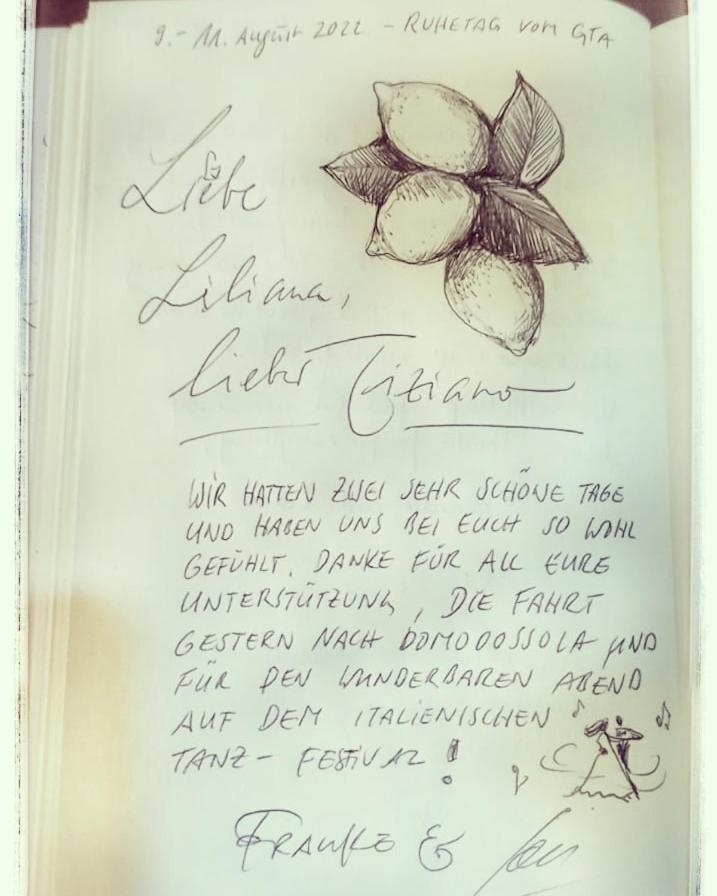 9.- 11. August 2022 - RUHETAG VOM GTA
Liebe
Liliana,
lieber Tiziano
WIR HATTEN ZWEI SEHR SCHÖNE TAGE
UND HABEN UNS BEI EUCH SO WOHL
GEFÜHLT. DANKE FÜR ALL EURE
UNTERSTÜTZUNG, DIE FAHRT
GESTERN NACH DOMODOSSOLA UND
FÜR DEN WUNDERBAREN ABEND
AUF DEM ITALIENISCHEN
TANZ- FESTIVAL!
FRAUKE &